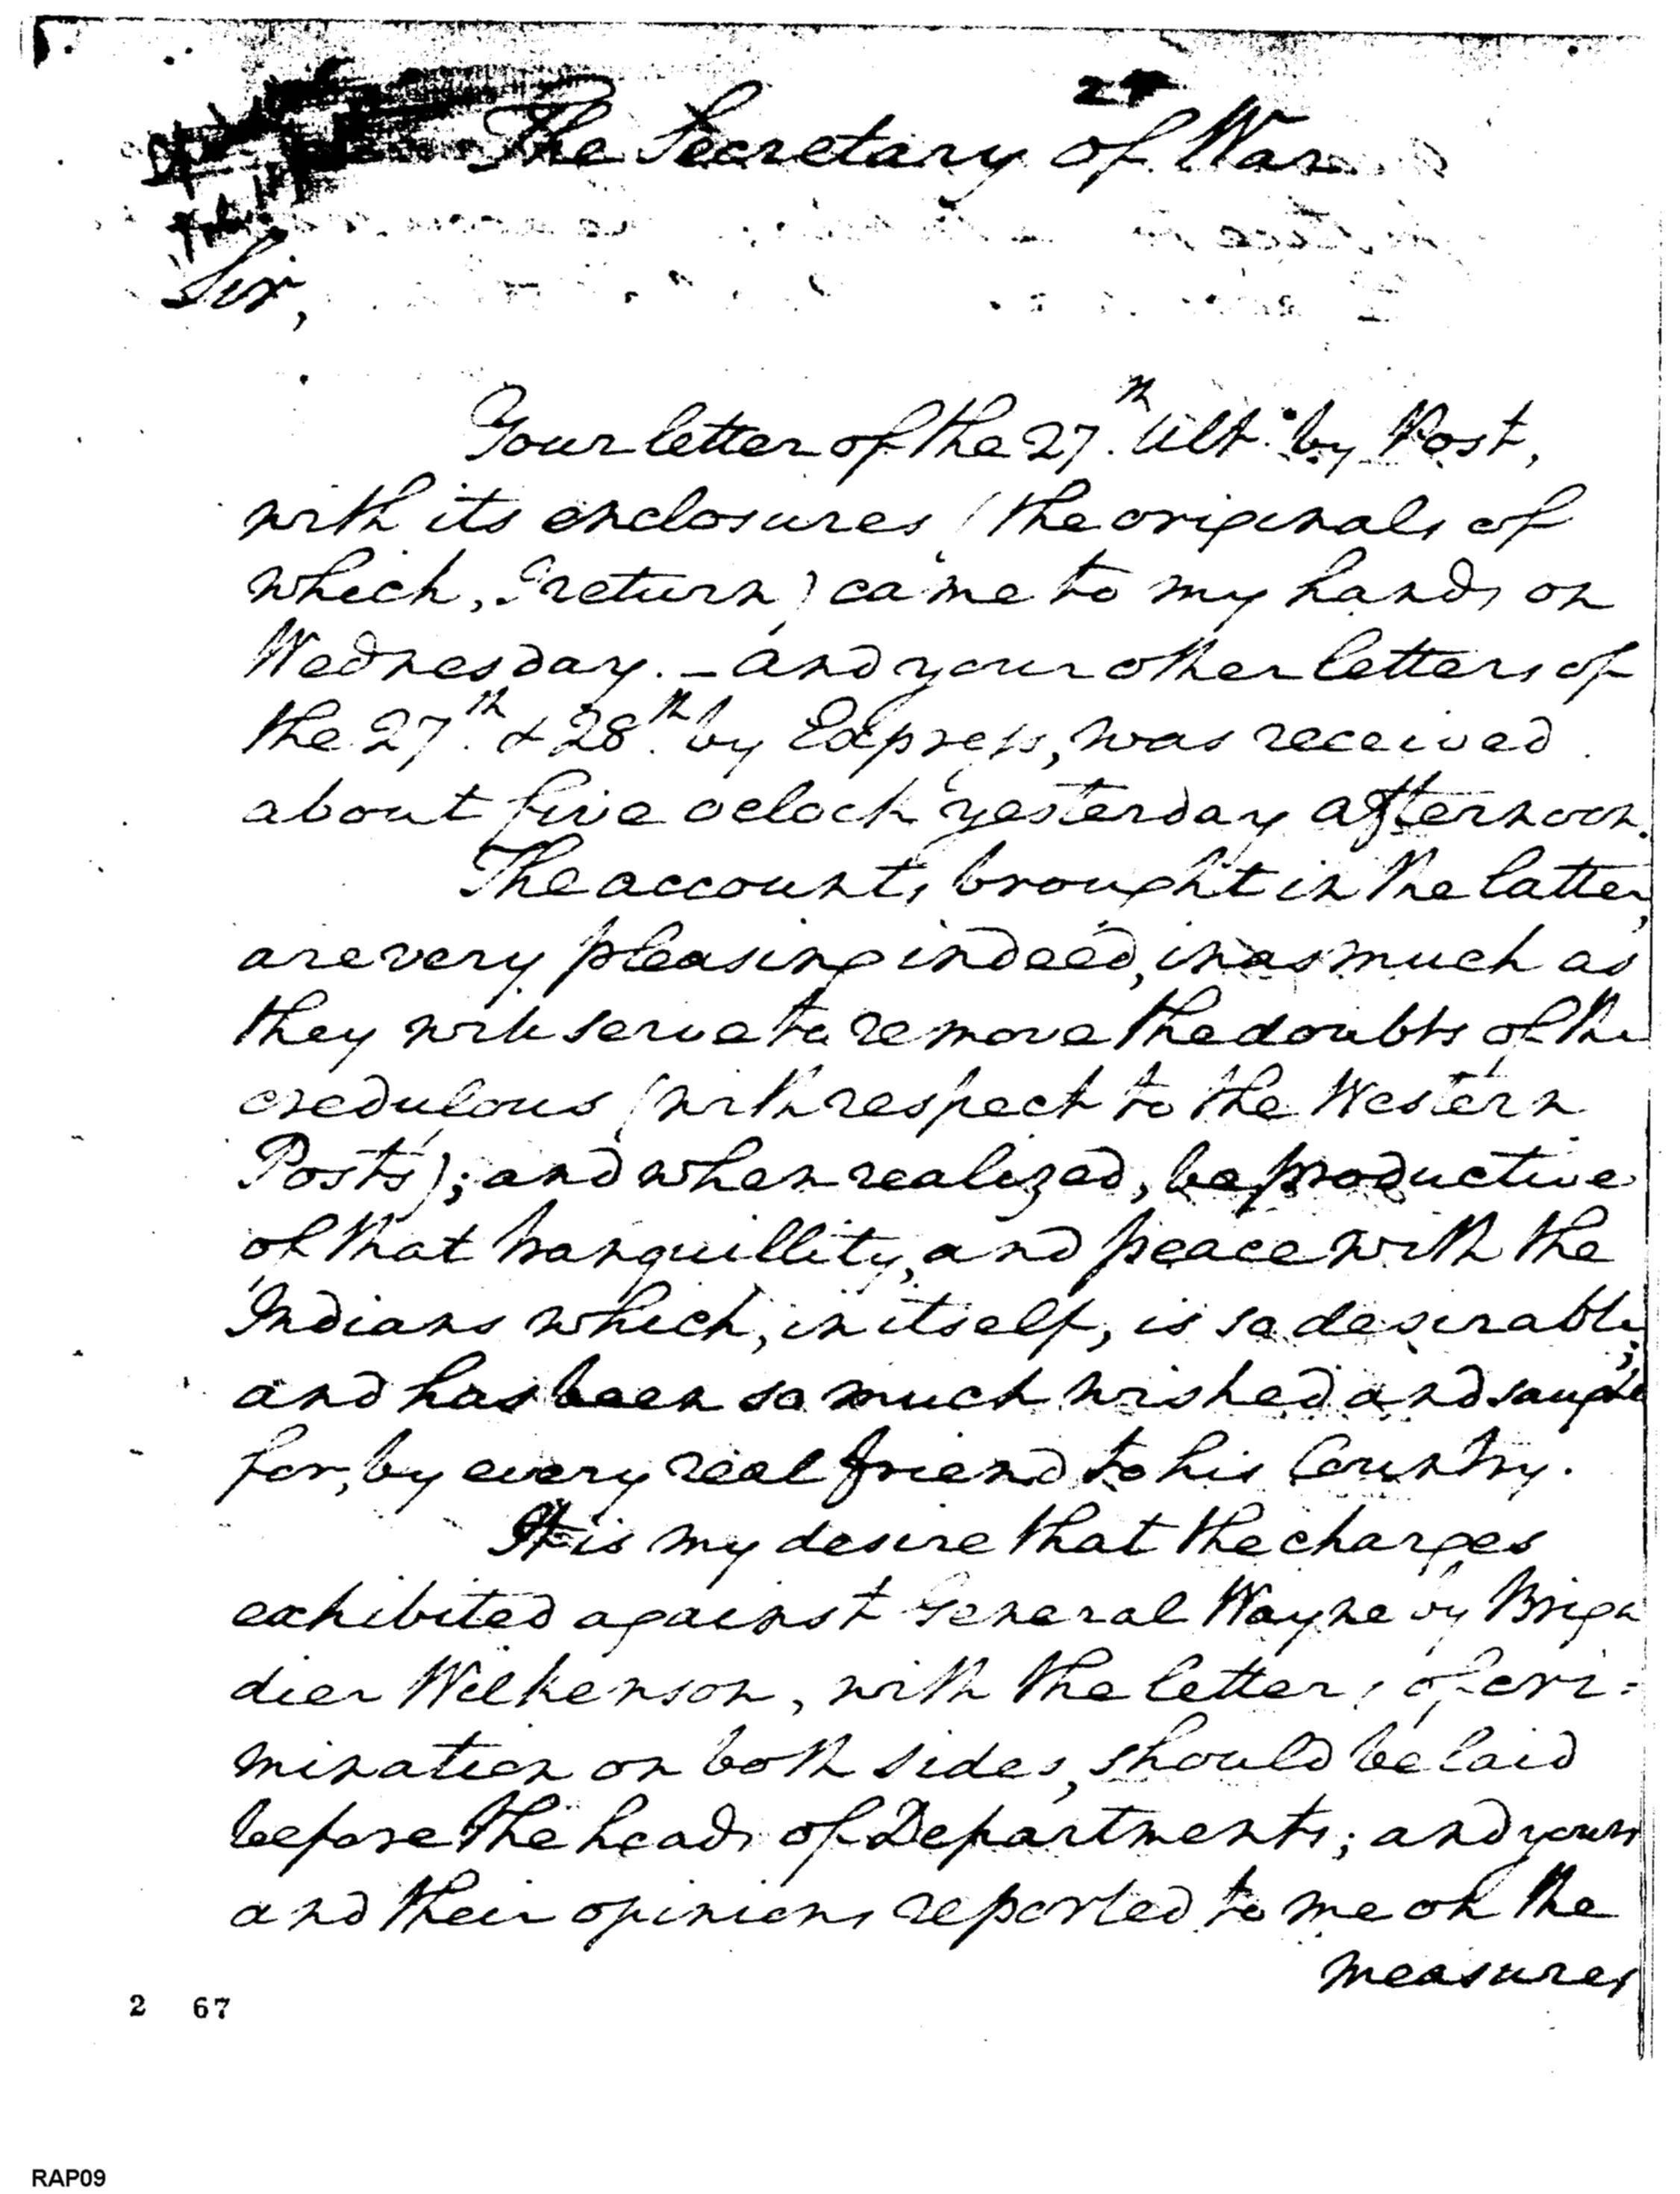 The Secretary of War
Sir,
Your letter of the 27.th Ult. by Post,
with its enclosures (the originals of
which, I return) came to my hands on
Wednesday. – and your other letters of
the 27.th & 28.th by Express, was received
about five oclock yesterday afternoon.
The accounts brought in the latter,
are very pleasing indeed, inasmuch as
they will serve to remove the doubts of the
credulous (with respect to the Western
Posts); and when realized, be productive
of that tranquillity, and peace with the
Indians which, in itself, is so desirable;
and has been so much wished and sought
for, by every real friend to his Country.
It is my desire that the charges
exhibited against General Wayne by Briga
dier Wilkenson, with the letters of cri=
mination on both sides, should be laid
before the heads of Departments; and yours
and their opinions reported to me on the
measures
2 67
RAP09